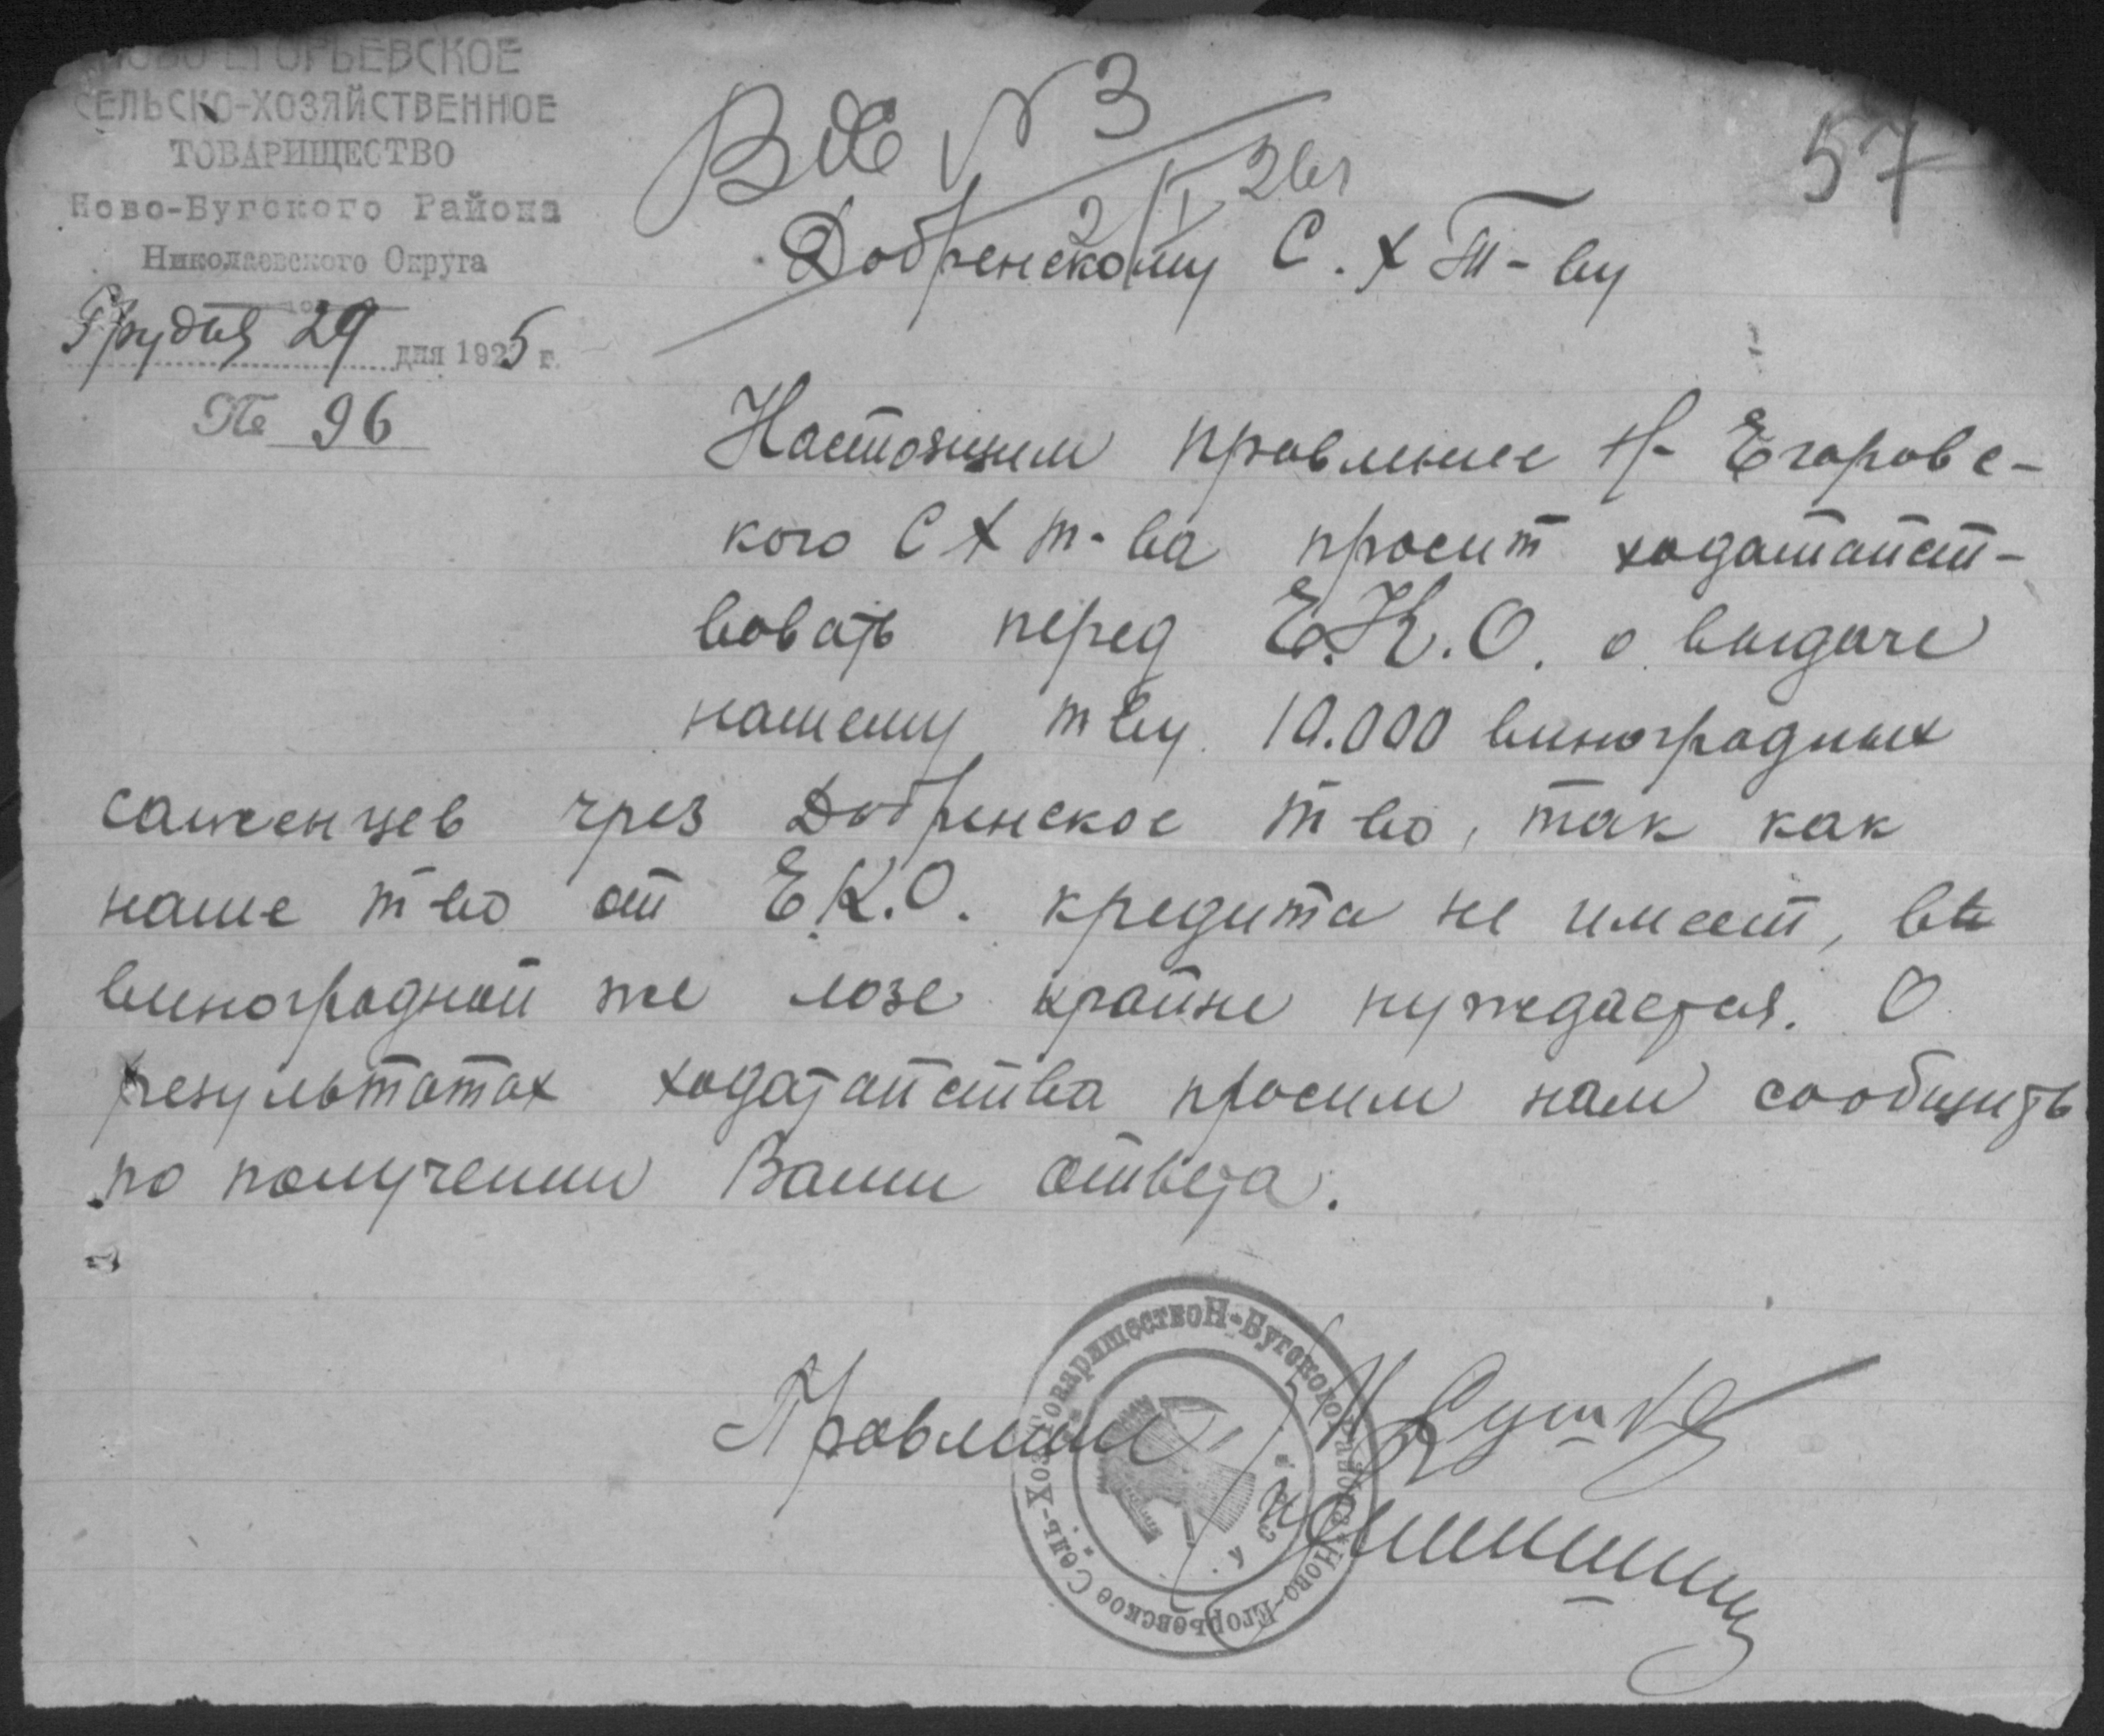 НОВО ЕГОРЬЕВСКОЕ
СЕЛЬСКО-ХОЗЯЙСТВЕННОЕ
ТОВАРИЩЕСТВО
Ново-Бугского Района
Николаевского Округа
Грудня 29 дня 1925 г.
№ 96
Вх № 3
2/I 26г
57
Добренскому С. Х Т-ву
Настоящим правление Н- Егоровс-
кого С Х т-ва просит ходатайст-
вовать перед Е.К.О. о выдаче
нашему т ву 10.000 виноградных
саженцев чрез Добренское т во, так как
наше т-во от Е.К.О. кредита не имеет, в
виноградной же лозе крайне нуждается. О
результатах ходатайства просим нам сообщить
по получении Вами ответа.
Правление
Ново-Егорьевское Сель-Хоз Товарищество Н-Бугского Района
У С С Р